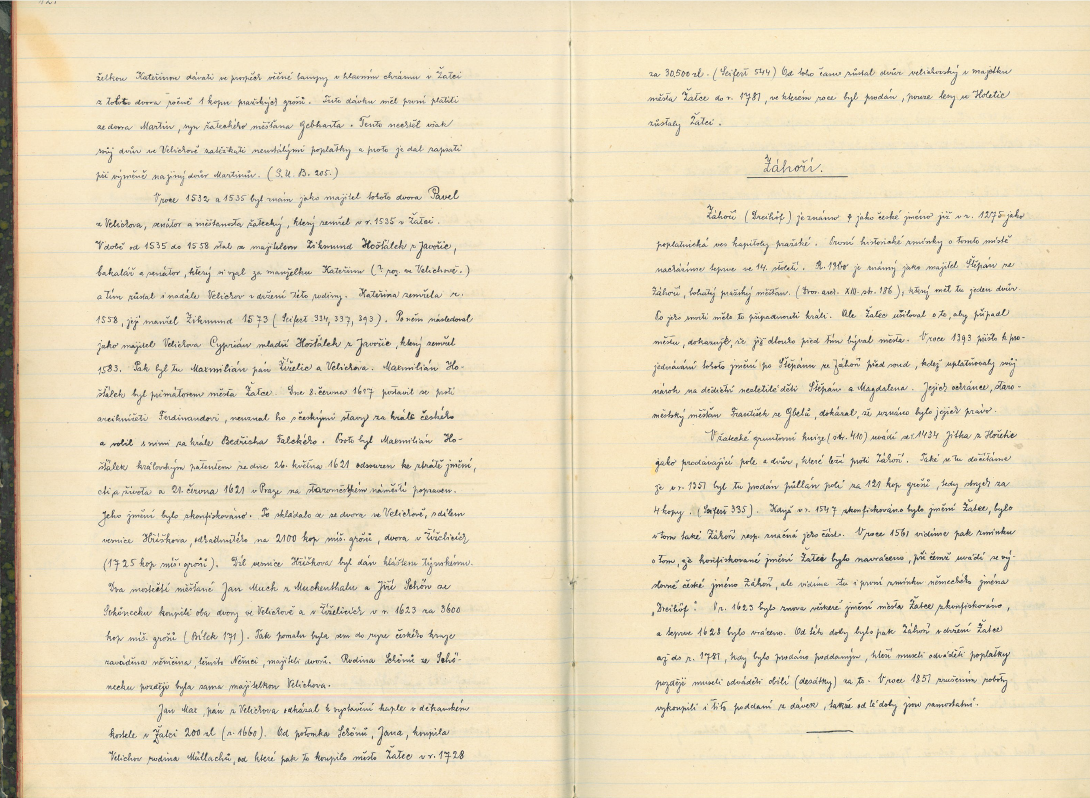 želkou Kateřinou dávali ve prospěch věčné lampy v hlavním chrámu v Žatci
z tohoto dvora ročně 1 kopu pražských grošů. Tuto dávku měl první platiti
ze dvora Martin, syn žateckého měšťana Gebharta. Tento nechtěl však
svůj dvůr ve Velichově zatěžkati neustálými poplatky a proto je dal zapsati
při výměně na jiný dvůr Martinův. (S. U. B. 205.)
V roce 1532 a 1535 byl znám jako majitel tohoto dvora Pavel
z Velichova, senátor a měšťanosta žatecký, který zemřel v r. 1535 v Žatci.
V době od 1535 do 1558 stal se majitelem Zikmund Hošťálek z Javořice,
bakalář a senátor, který si vzal za manželku Kateřinu (? roz. ve Velichově.)
a tím zůstal i nadále Velichov v držení této rodiny. Kateřina zemřela r.
1558, její manžel Zikmund 1573 (Seifert 334, 337, 393). Po něm následoval
jako majitel Velichova Cyprián mladší Hošťálek z Javořice, který zemřel
1583. Pak byl tu Maxmilian pán Žiželic a Velichova. Maxmilián Ho-
šťálek byl primátorem města Žatce. Dne 8. června 1617 postavil se proti
arciknížeti Ferdinandovi, neuznal ho s českými stavy za krále českého
a volil s nimi za krále Bedřicha Falckého. Proto byl Maxmilián Ho-
šťálek královským patentem ze dne 26. května 1621 odsouzen ke ztrátě jmění,
cti a života a 21. června 1621 v Praze na staroměstském náměstí popraven.
Jeho jmění bylo skonfiskováno. To skládalo se ze dvora ve Velichově, s dílem
vesnice Hříškova, odhadnutého na 2100 kop míš. grošů, dvora v Žiželicích
(1725 kop míš. grošů). Díl vesnice Hříškova byl dán klášteru týnskému.
Dva mostečtí měšťané Jan Much z Muchenthalu a Jiří Schön ze
Schönecku koupili oba dvory ve Velichově a v Žiželicích v r. 1623 za 3600
kop míš. grošů (Bílek 171). Tak pomalu byla sem do ryze českého kraje
zaváděna němčina, těmito Němci, majiteli dvorů. Rodina Schönů ze Schö-
necku později byla sama majitelkou Velichova.
Jan Max, pán z Velichova odkázal k vystavění kaple v děkanském
kostele v Žatci 200 zl (r. 1660). Od potomka Schönů, Jana, koupila
Velichov rodina Müllachů, od které pak to koupilo město Žatec v r. 1728
za 30.500 zl. (Seifert 544) Od toho času zůstal dvůr velichovský v majetku
města Žatce do r. 1781, ve kterém roce byl prodán, pouze lesy u Holetic
zůstaly Žatci.
Záhoří.
Záhoří (Dreihöf) je známo jako české jméno již v r. 1275 jako
poplatnická ves kapituly pražské. První historické zmínky o tomto místě
nacházíme teprve ve 14. století. R. 1360 je známý jako majitel Štěpán ze
Záhoří, bohatý pražský měšťan. (Pros. arch. XIII. str. 186), který měl tu jeden dvůr.
Po jeho smrti mělo to připadnouti králi. Ale Žatec usiloval o to, aby připadl
městu, dokazuje, že již dlouho před tím býval města. V roce 1393 přišlo k pro-
jednávání tohoto jmění po Štěpánu ze Záhoří před soud, kdež uplatňovaly svůj
nárok na dědictví nezletilé děti Štěpán a Magdalena. Jejich ochránce, staro-
městský měšťan František ze Gbelů, dokázal, že uznáno bylo jejich právo.
V žatecké gruntovní knize (str. 410) uvádí se r. 1434 Jitka z Hořetic
jako prodávající pole a dvůr, které leží proti Záhoří. Také se tu dočítáme
že v r. 1351 byl tu prodán půllán polí za 121 kop grošů, tedy strych za
4 kopy. (Seifert 335). Když v r. 1547 skonfiskováno bylo jmění Žatce, bylo
v tom také Záhoří resp. značná jeho část. V roce 1561 vidíme pak zmínku
o tom že konfiskované jmění Žatce bylo navráceno, při čemž uvádí se vý-
slovně české jméno Záhoří, ale vidíme tu i první zmínku německého jména
„Dreihöf“. V r. 1623 bylo znova veškeré jmění města Žatce skonfiskováno,
a teprve 1628 bylo vráceno. Od této doby bylo pak Záhoří v držení Žatce
až do r. 1781, kdy bylo prodáno poddaným, kteří museli odváděti poplatky
později museli odváděti obilí (desátky) za to. V roce 1851 zrušením roboty
vykoupili i tito poddaní z dávek, takže od té doby jsou samostatní.